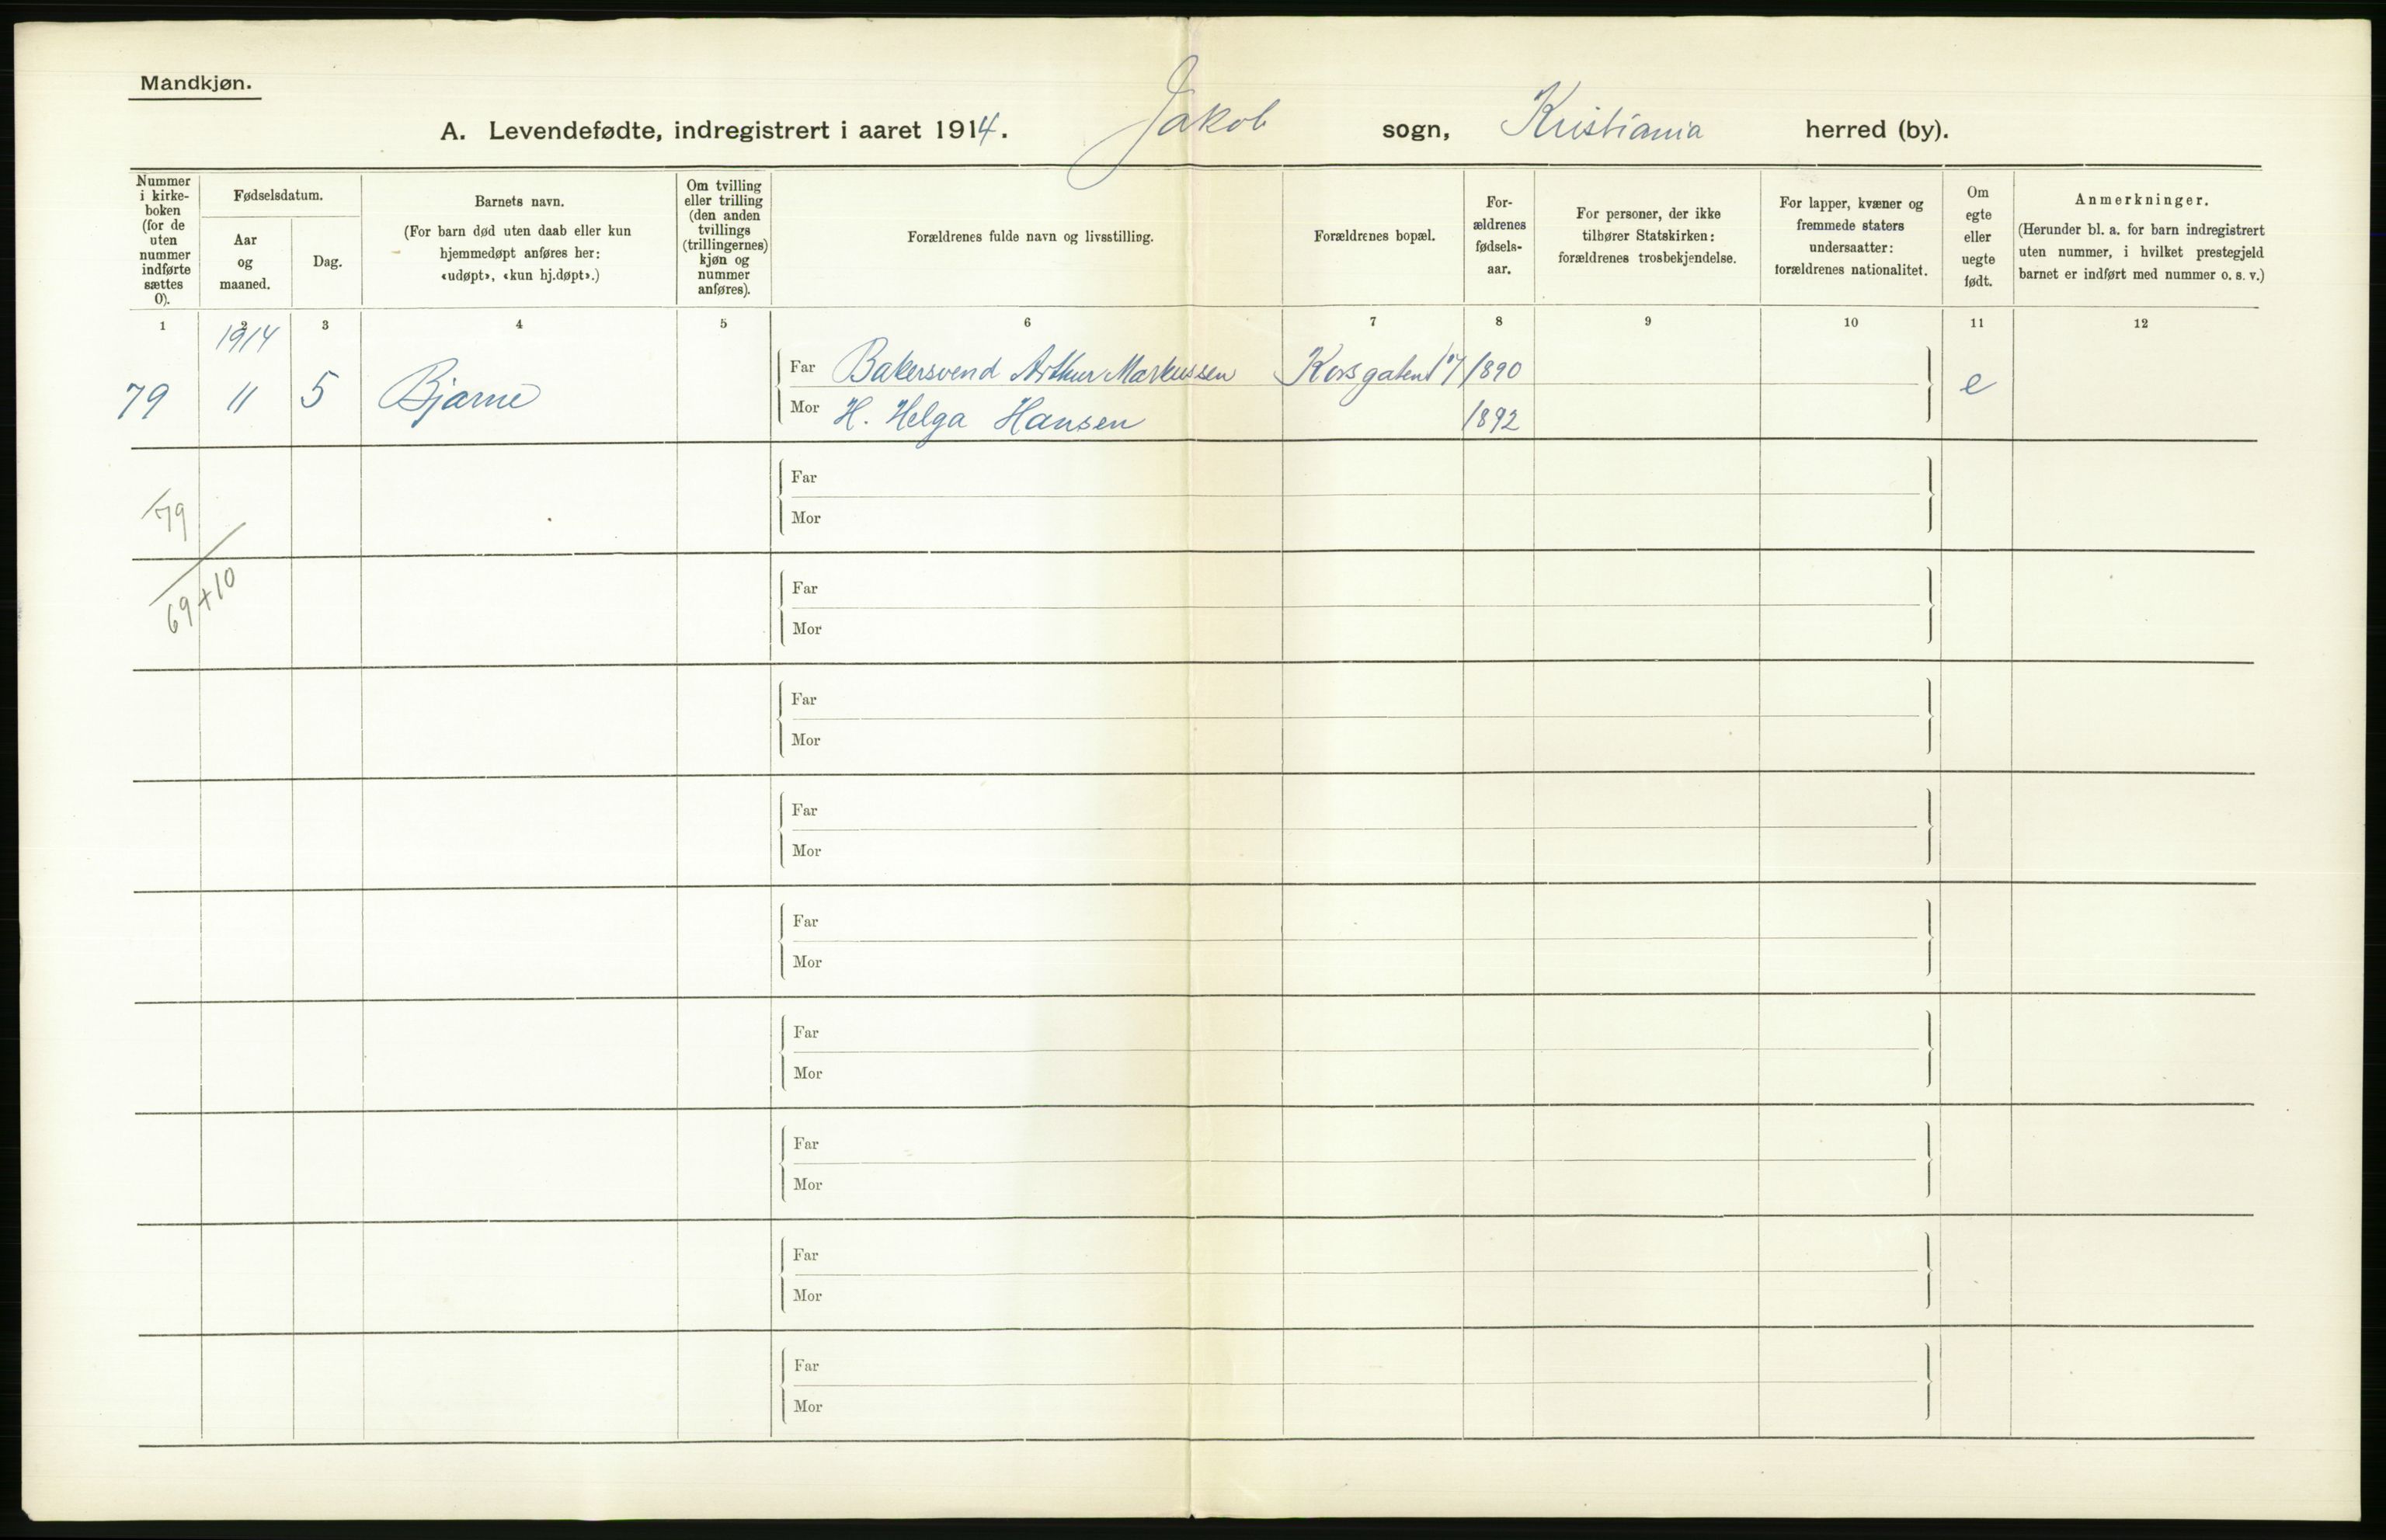 Mandkjøn.
A. Levendefødte, indregistrert i aaret 1914. Jakob sogn, Kristiania herred (by).
Nummer i kirke-boken (for de uten nummer indførte sættes 0).
Fødselsdatum.
Aar og maaned.
Dag.
Barnets navn.
(For barn død uten daab eller kun hjemmedøpt anføres her: «udøpt», «kun hj.døpt».)
Om tvilling eller trilling (den anden tvillings (trillingernes) kjøn og nummer anføres).
Forældrenes fulde navn og livsstilling.
Forældrenes bopæl.
For-ældrenes fødsels-aar.
For personer, der ikke tilhører Statskirken: forældrenes trosbekjendelse.
For lapper, kvæner og fremmede staters undersaatter: forældrenes nationalitet.
Om egte eller uegte født.
Anmerkninger.
(Herunder bl. a. for barn indregistrert uten nummer, i hvilket prestegjeld barnet er indført med nummer o. s. v.)
1 2 3 4 5 6 7 8 9 10 11 12
1914
79 11 5 Bjarne Far Bakersvend Arthur Markussen Korsgaten 1890 e
Mor H. Helga Hansen 1892
Far
79
Mor
69+10
Far
Mor
Far
Mor
Far
Mor
Far
Mor
Far
Mor
Far
Mor
Far
Mor
Far
Mor